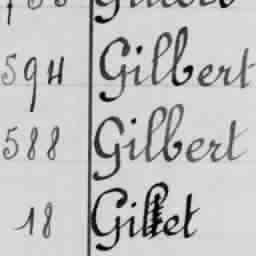 594 Gilbert
588 Gilbert
18 Gillet